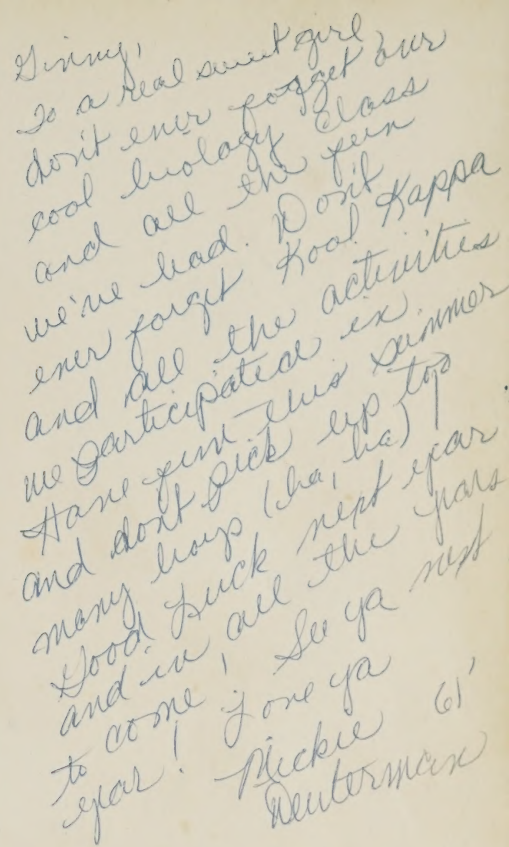 Ginny,
To a real sweet girl
don't ever forget our
cool biology class
and all the fun
we've had. Don't
ever forget Kool Kappa
and all the activities
we participated in.
Have fun this summer
and dont pick up too
many boys (ha, ha)!
Good Luck next year
and in all the years
to come! See ya next
year! Love ya
Mickie 61'
Deuterman